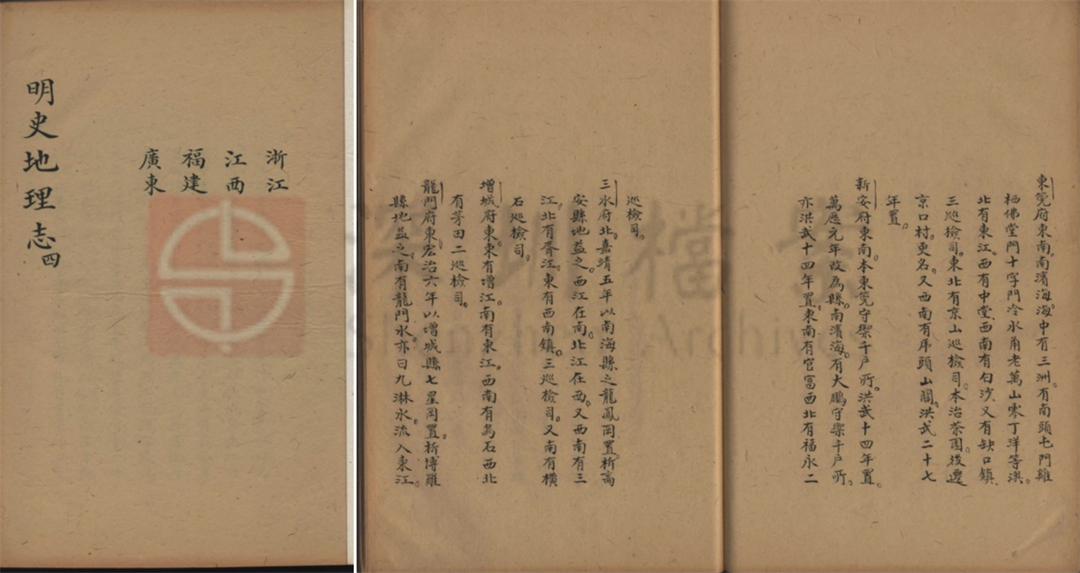 浙江
江西
福建
廣東
明史地理志四
東莞府東南。南濱海。海中有三洲。有南頭屯門雞
栖佛堂門十字門冷水角老萬山零丁洋等澳。
北有東江。西有中堂西南有白沙又有缺口鎮
三巡檢司。東北有京山巡檢司。本治茶園後遷
京口村。更名。又西南有虎頭山關。洪武二十七
年置。
新安府東南。本東莞守禦千戶所。洪武十四年置。
萬歷元年改為縣。南濱海。有大鵬守禦千戶所。
亦洪武十四年置。東南有官富西北有福永二
巡檢司。
三水府北。嘉靖五年以南海縣之龍鳳岡置析高
安縣地益之。西江在南。北江在西。又西南有三
江北有胥江東有西南鎮。三巡檢司。又南有橫
石巡檢司。
增城府東。東有增江。南有東江。西南有烏石西北
有茅田二巡檢司。
龍門府東。宏治六年以增城縣七星岡置析博羅
縣地益之。南有龍門水。亦曰九淋水。流入東江。